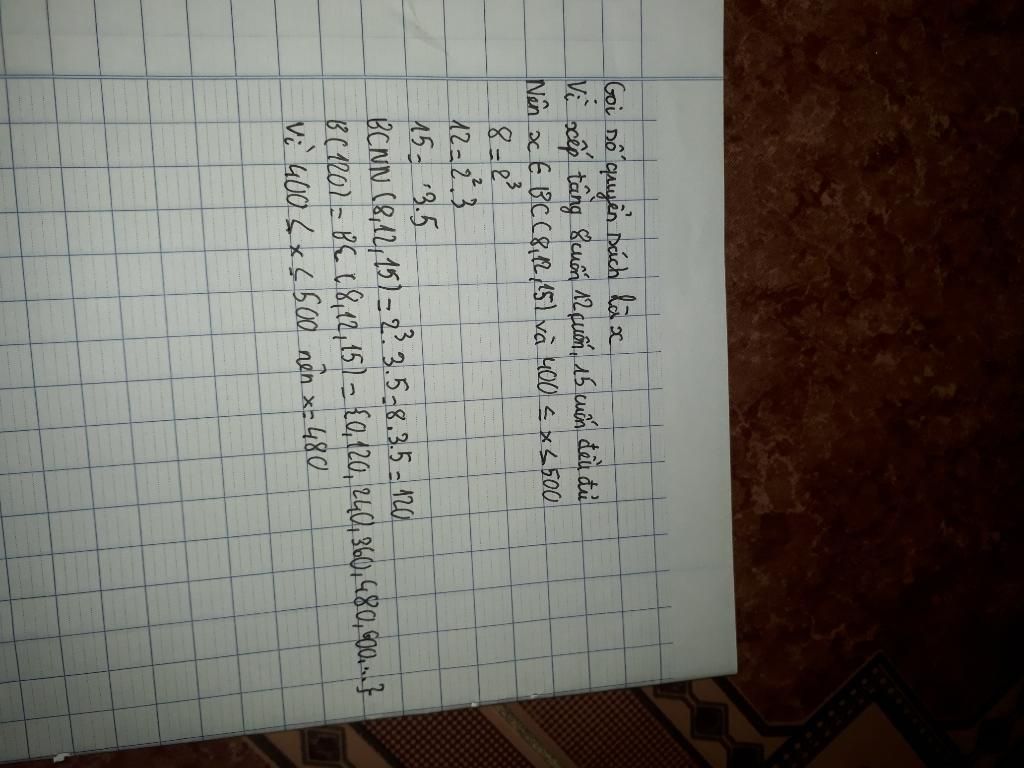 Gọi số quyển sách là x
Vì xếp từng 8 cuốn 12 cuốn, 15 cuốn đều đủ
Nên x ∈ BC (8, 12, 15) và 400 ≤ x ≤ 500
8 = 2³
12 = 2². 3
15 = 3.5
BCNN (8, 12, 15) = 2³. 3. 5 = 8. 3. 5 = 120
B(120) = BC (8, 12, 15) = {0, 120, 240, 360, 480, 600,...}
Vì 400 ≤ x ≤ 500 nên x = 480